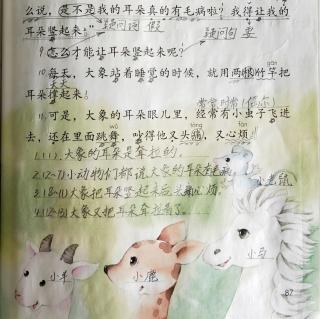 么说，是不是我的耳朵真的有毛病啦？我得让我的
耳朵竖起来。" 疑问词 假 疑问句 要
9.怎么才能让耳朵竖起来呢？
10.每天，大象站着睡觉的时候，就用两根竹竿把
耳朵撑起来。
常常 时常
11.可是，大象的耳朵眼儿里，经常有小虫子飞进
去，还在里面跳舞，吵得他又头痛，又心烦。
1.(1)大象的耳朵是耷拉的。
2.(2-7)小动物们都说大象的耳朵
3.(8-11)大象把耳朵竖起来后头痛心烦。
4.(12-13)大象又把耳朵耷拉着了。
小老鼠
小羊
小鹿
小马
87